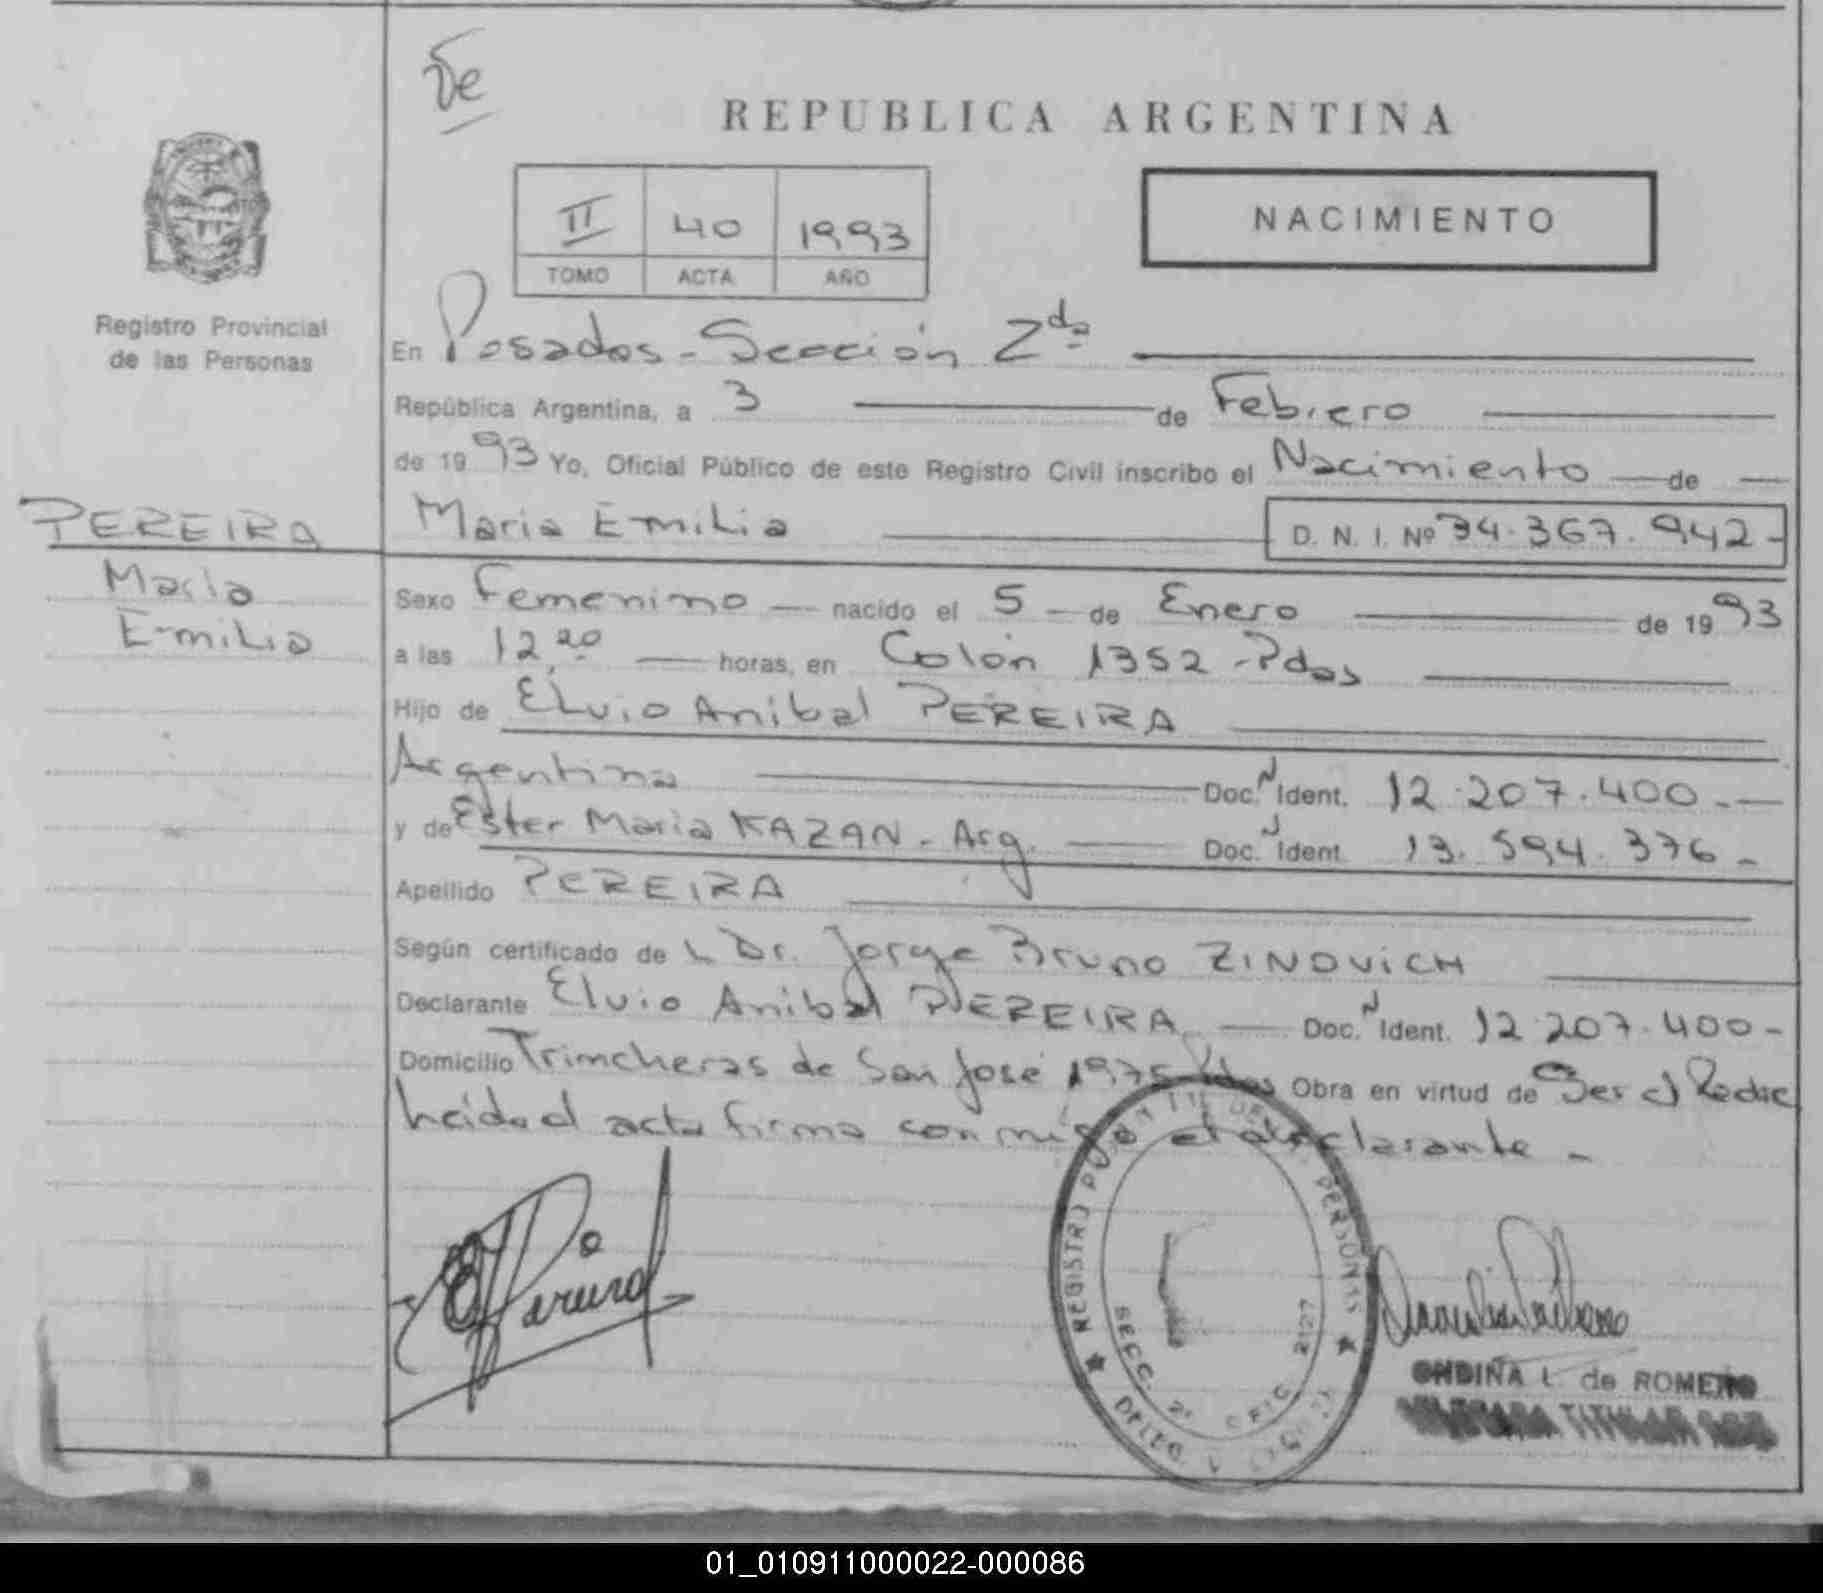 De
REPUBLICA ARGENTINA
II 40 1993
TOMO ACTA AÑO
NACIMIENTO
Registro Provincial
de las Personas
En Posadas - Sección 2da
República Argentina, a 3 de Febrero
de 1993 Yo, Oficial Público de este Registro Civil inscribo el Nacimiento de
PEREIRA
Maria Emilia D. N. I. Nº 34.367.942-
Maria
Emilia
Sexo Femenino nacido el 5 de Enero de 1993
a las 12,20 horas, en Colón 1352 - Pdas
Hijo de Elvio Anibal PEREIRA
Argentina Doc. N Ident. 12.207.400.-
y de Ester Maria KAZAN - Arg. Doc. N Ident. 13.594.376-
Apellido PEREIRA
Según certificado de L Dr. Jorge Bruno ZINOVICH
Declarante Elvio Anibal PEREIRA Doc. N Ident. 12.207.400-
Domicilio Trincheras de San José 1975 Pdas Obra en virtud de Ser el Padre
leida el acta firma conmigo el declarante -
REGISTRO DE LAS PERSONAS
SECC. 2ª OFIC. 2127
ONDINA L. de ROMERO
TITULAR
01_010911000022-000086